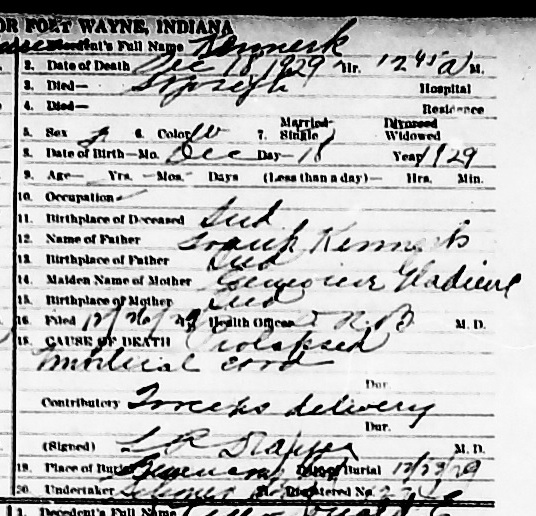 OR FORT WAYNE, INDIANA
Decedent's Full Name Kennerk
2. Date of Death Dec 18, 1929 Hr. 12 45 A M.
3. Died— St Joseph Hospital
4. Died— Residence
5. Sex F 6. Color W 7. Married Single Divorced Widowed
8. Date of Birth—Mo. Dec Day— 18 Year 1929
9. Age— Yrs. Mos. Days (Less than a day)— Hrs. Min.
10. Occupation
11. Birthplace of Deceased Ind
12. Name of Father Frank Kennerk
13. Birthplace of Father Ind
14. Maiden Name of Mother Genevieve
15. Birthplace of Mother Ind
16. Filed 12/26/29 Health Officer M. D.
18. CAUSE OF DEATH Prolapsed
umbilical cord
Dur.
Contributory Forceps delivery
Dur.
(Signed) M. D.
19. Place of Burial Date of Burial 12/23/29
20. Undertaker Registered No.
1. Decedent's Full Name